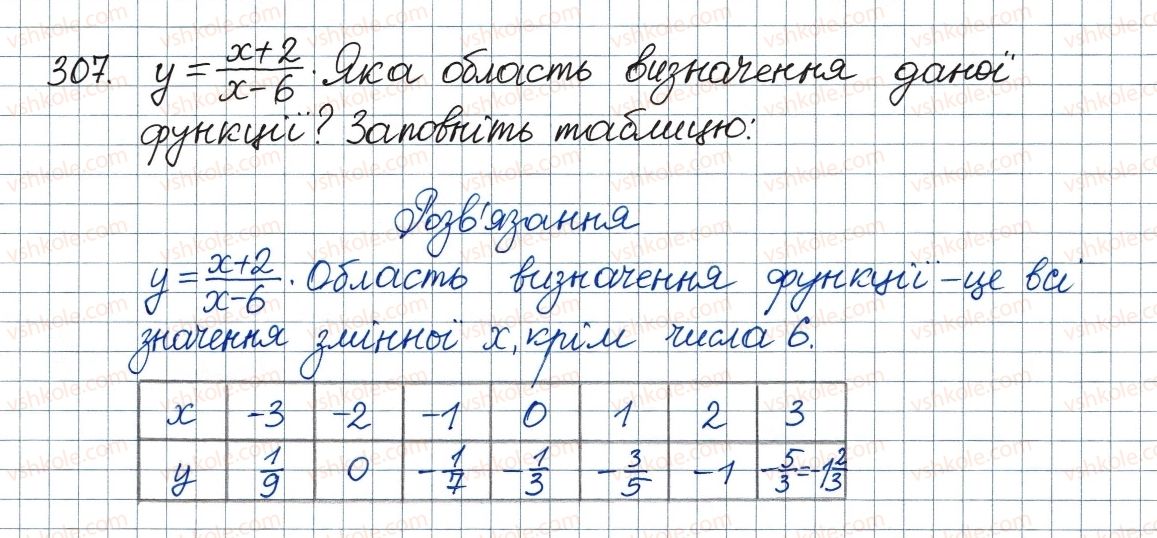 307. y = (x+2)/(x-6). Яка область визначення даної
функції? Заповніть таблицю:
Розв'язання
y = (x+2)/(x-6). Область визначення функції - це всі
значення змінної x, крім числа 6.
x -3 -2 -1 0 1 2 3
y 1/9 0 -1/7 -1/3 -3/5 -1 -5/3 = -1 2/3